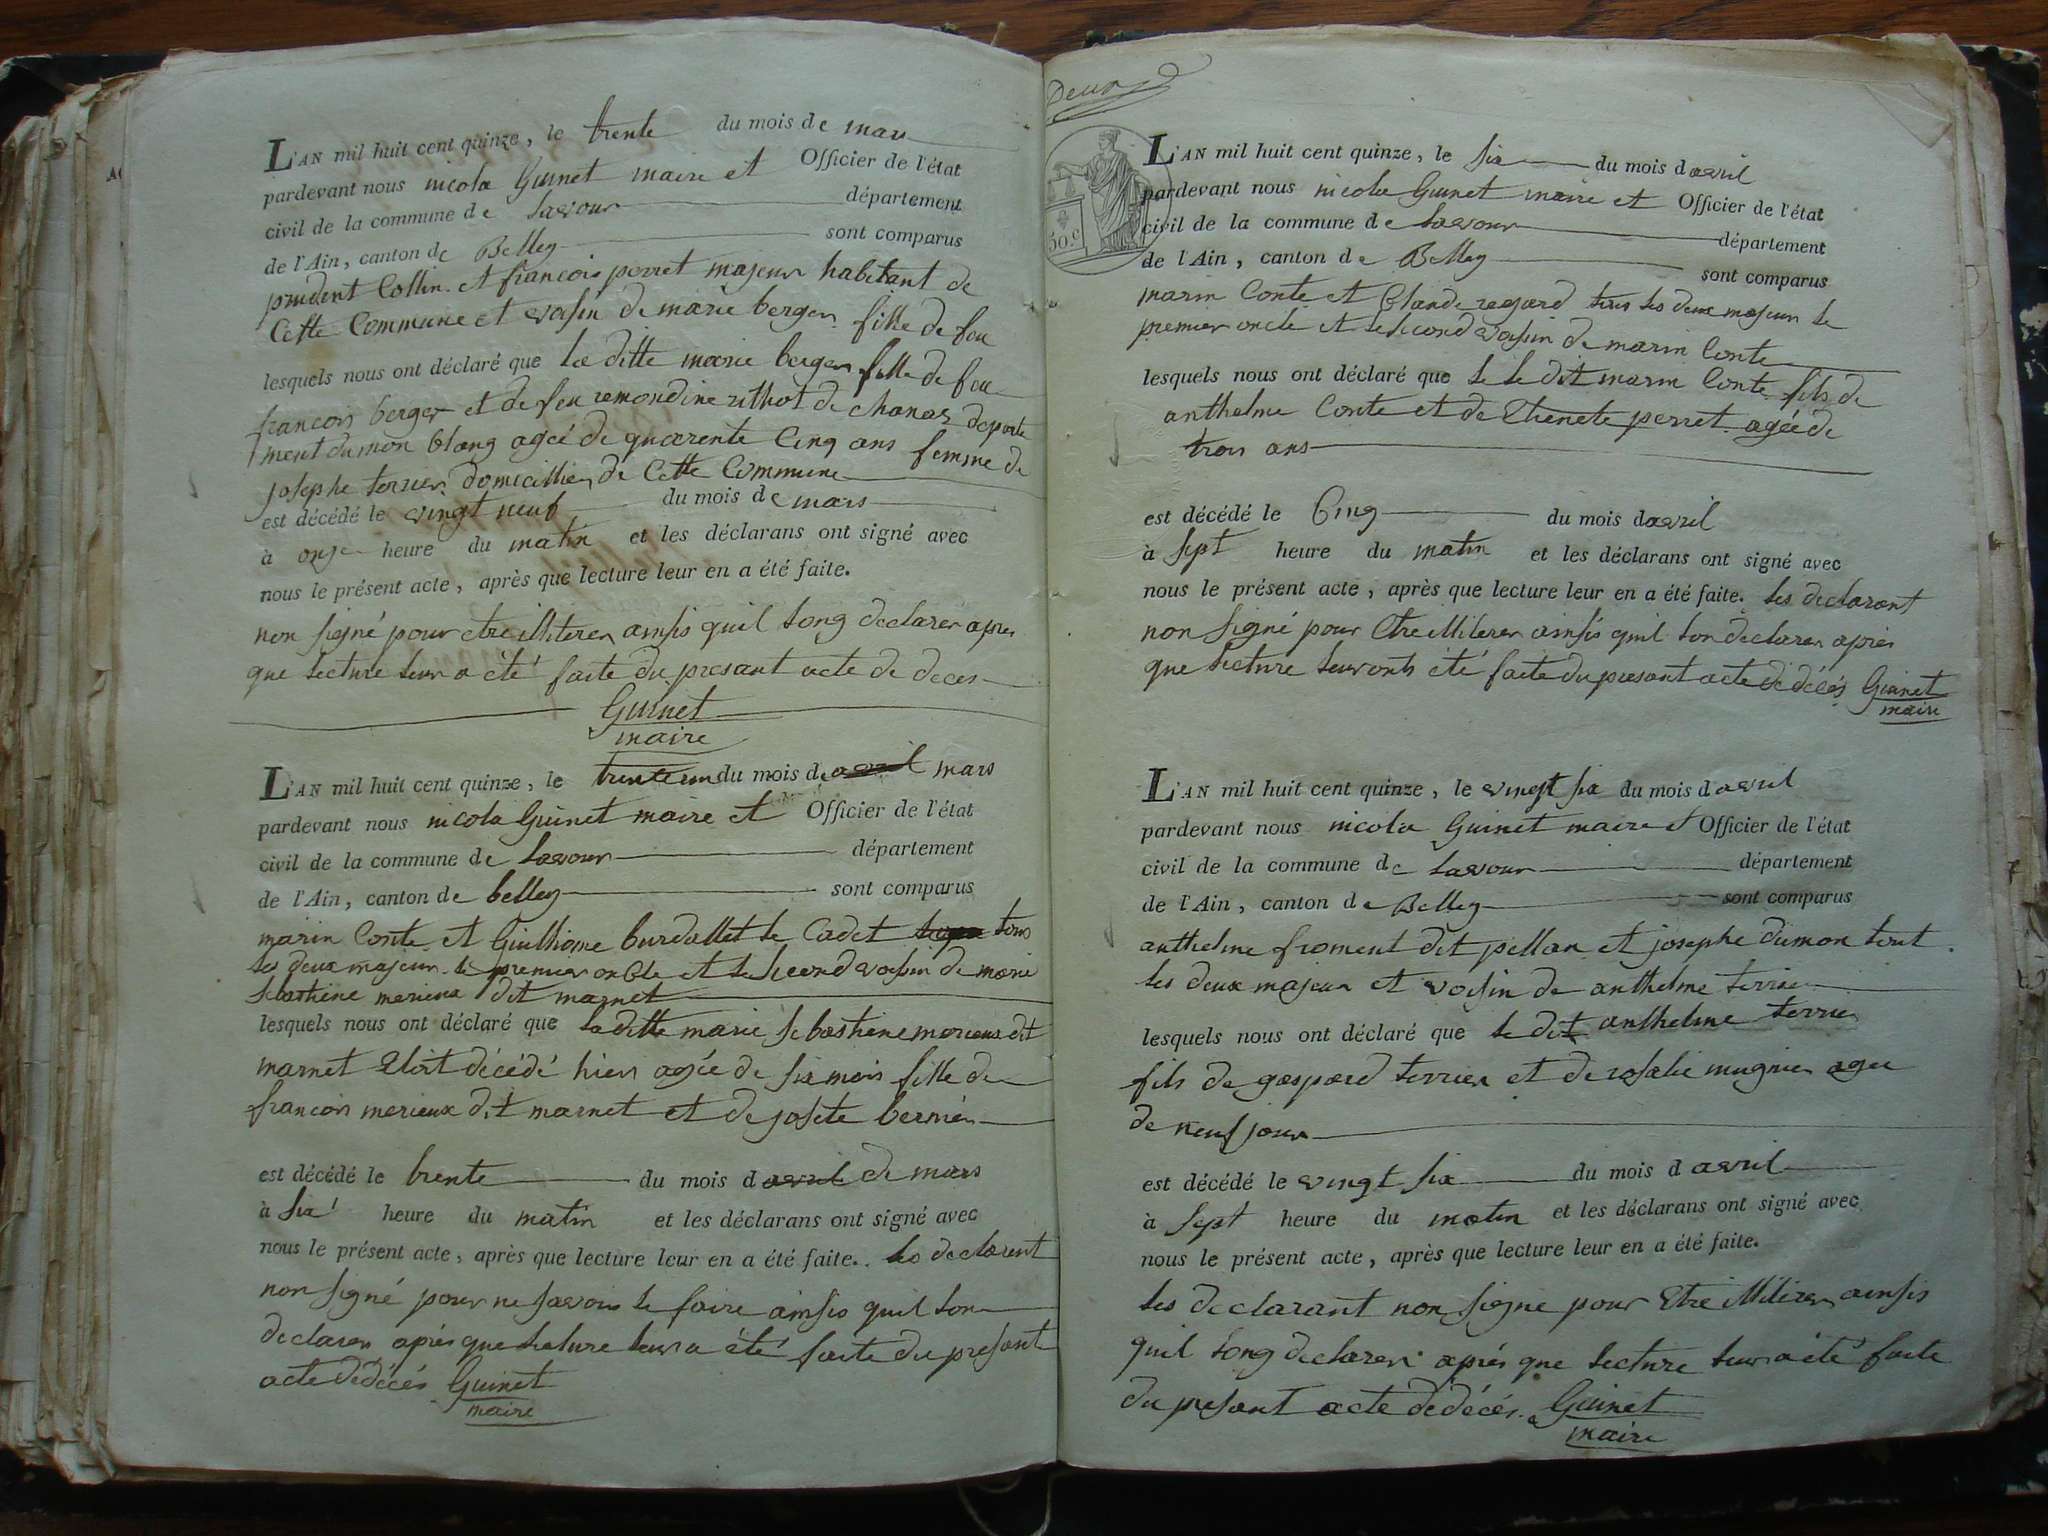 L'AN mil huit cent quinze, le trente du mois de mars
pardevant nous nicola Guinet maire et Officier de l'état
civil de la commune de Lavour département
de l'Ain, canton de Belley sont comparus
prudent Collin et francois perret majeur habitant de
Cette Commune et voisin de marie berger fille de feu
lesquels nous ont déclaré que la ditte marie berger fille de feu
francois berger et de feu remondine rithot de chanaz departe
ment du mon blang ageé de quarente Cinq ans femme de
josephe terrier domicillier de Cette Commune
est décédé le vingt neuf du mois de mars
à onze heure du matin et les déclarans ont signé avec
nous le présent acte, après que lecture leur en a été faite.
non signé pour etre illiterer ainsis quil long declarer apres
que lecture leur a été faite du presant acte de deces
Guinet
maire
L'AN mil huit cent quinze, le trente un du mois de avril mars
pardevant nous nicola Guinet maire et Officier de l'état
civil de la commune de Lavour département
de l'Ain, canton de belley sont comparus
marin Conte et Guilliome burdallet le Cadet tous
les deux majeur le premier oncle et le second voisin de marie
sebastiene merieux dit marnet
lesquels nous ont déclaré que la ditte marie sebastiene merieux dit
marnet Etoit décédé hier agée de six mois fille de
francois merieux dit marnet et de josete bernier
est décédé le trente du mois d avril de mars
à six heure du matin et les déclarans ont signé avec
nous le présent acte, après que lecture leur en a été faite. les declarent
non signé pour ne savoir le faire ainsis quil lon
declarer apres que lecture leur a été faite du presant
acte de décés Guinet
maire
Deux
50.c
L'AN mil huit cent quinze, le six du mois d avril
pardevant nous nicola Guinet maire et Officier de l'état
civil de la commune de Lavour département
de l'Ain, canton de Belley sont comparus
marin Conte et Claude regard tous les deux majeur le
premier oncle et le second voisin de marin Conte
lesquels nous ont déclaré que le le dit marin Conte fils de
anthelme Conte et de Etienete perret agée de
trois ans
est décédé le Cinq du mois d avril
à sept heure du matin et les déclarans ont signé avec
nous le présent acte, après que lecture leur en a été faite. les declarant
non signé pour Etre illiterer ainsis quil lon declarer après
que lecture leur onts été faite du presant acte de décés Guinet
maire
L'AN mil huit cent quinze, le vingt six du mois d avril
pardevant nous nicola Guinet maire et Officier de l'état
civil de la commune de Lavour département
de l'Ain, canton de Belley sont comparus
anthelme froment dit pellan et josephe dumon tout
les deux majeur et voisin de anthelme terrier
lesquels nous ont déclaré que le dit anthelme terrier
fils de gaspard terrier et de rosalie mugnier ageé
de neuf jour
est décédé le vingt six du mois d avril
à sept heure du matin et les déclarans ont signé avec
nous le présent acte, après que lecture leur en a été faite.
les declarant non signe pour Etre illiterer ainsis
quil long declarer aprés que lecture leur a été faite
du presant acte de décés. Guinet
maire